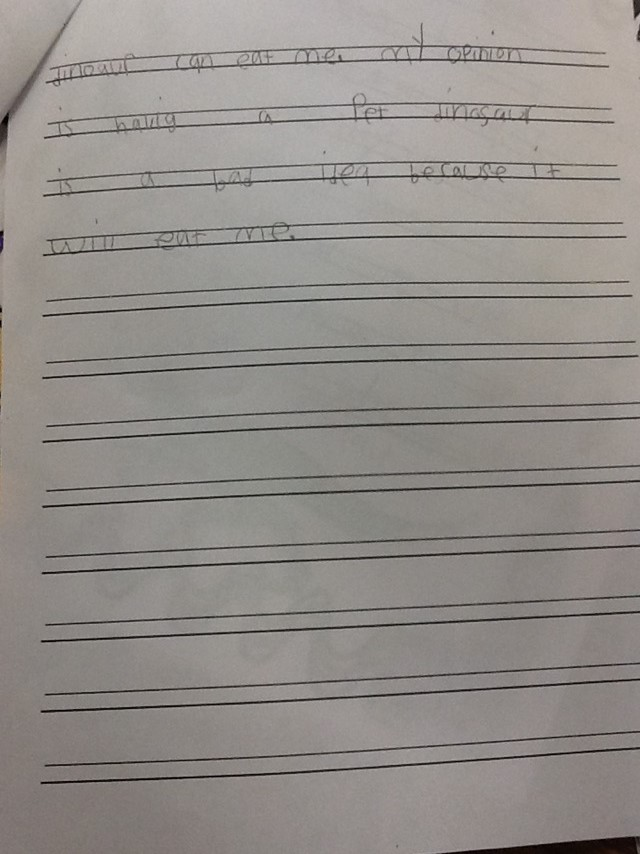 dinoaur can eat me. my opinion
is havig a Pet dinosaur
is a bad idea because it
will eat me.